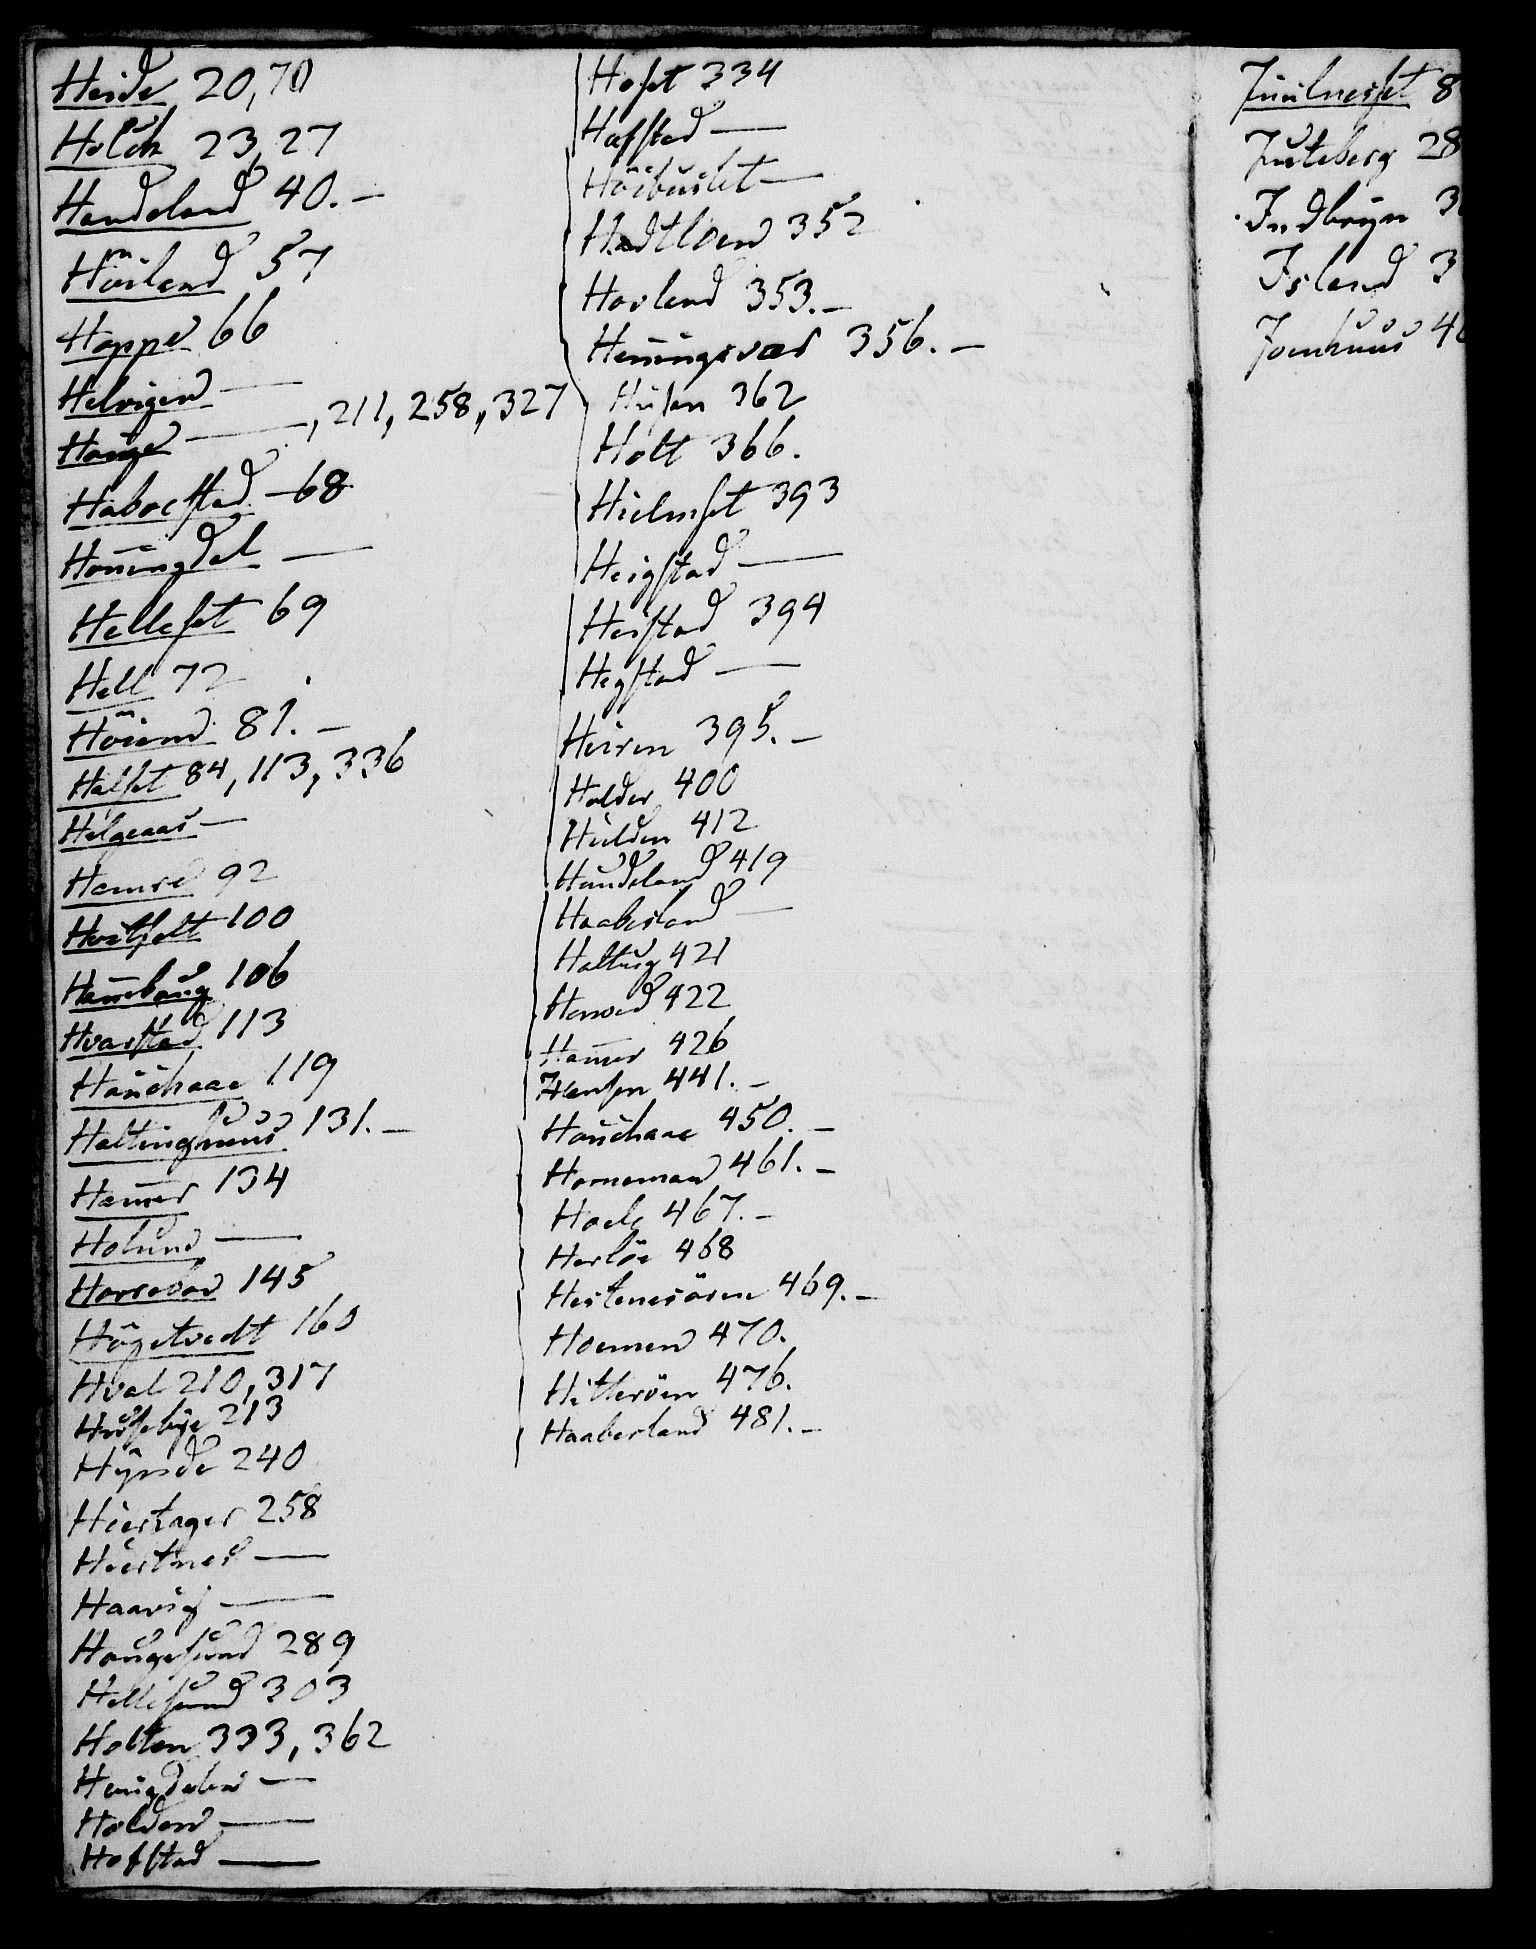 Heide 20,70
Holck 23,27
Handeland 40.-
Höiland 57
Hoppe 66
Helvigen —
Hauge —, 211, 258, 327
Haborstad - 68
Hoñingdal —
Helleset 69
Hell 72
Höiend 81.-
Halset 84, 113, 336
Helgeaas —
Hamre 92
Hvitfelt 100
Ham̄baug 106
Hvarstad 113
Hauchaae 119
Haltinghuus 131.-
Ham̄er 134
Holund —
Horsevov 145
Högetvedt 160
Hval 210, 317
Husebye 213
Hynde 240
Hiertager 258
Hiertnes —
Haavig —
Haugesund 289
Hellesund 303
Holten 333, 362
Holden —
Hofstad —
Hofet 334
Hafstad —
Höibuslet —
Hadtloen 352
Hovland 353.-
Heñingsvær 356.-
Husan 362
Holt 366.
Hielmset 393
Heigstad —
Heistad 394
Hegstad —
Heiren 395.-
Holder 400
Hulden 412
Haudeland 419
Haabesland —
Haltug 421
Harved 422
Ham̄er 426
Hansen 441.-
Hauchaae 450.-
Horneman 461.-
Hoels 467.-
Herlöe 468
Hestenesören 469.-
Hoemen 470.
Hitteröen 476.
Haaberland 481.-
Juulneset 8
Juteberg 28
Indbryn 3
Island 3
Jomhuus 4